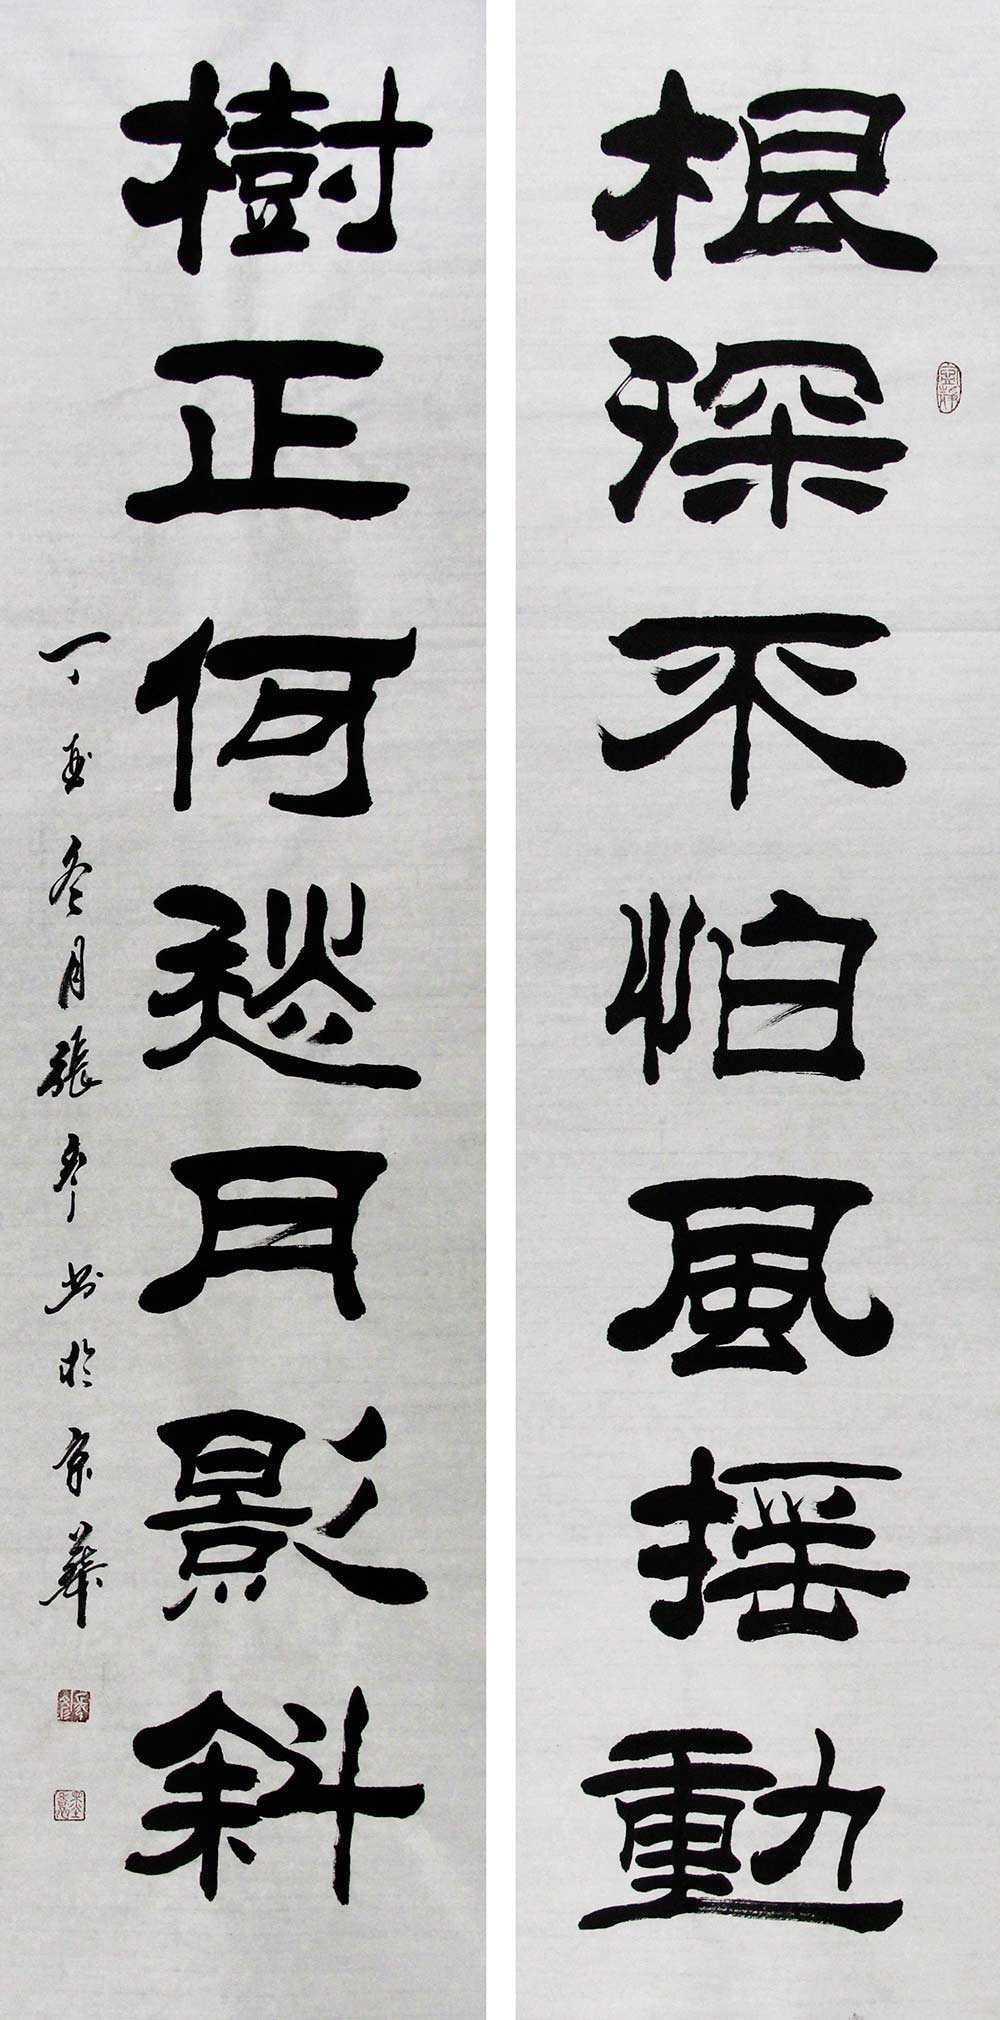 根深不怕風摇動
樹正何愁月影斜
丁冬月張书於京華